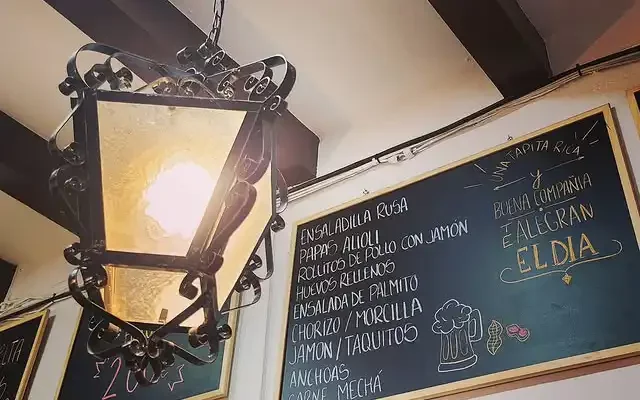 ENSALADILLA RUSA
PAPAS ALIOLI
ROLLITOS DE POLLO CON JAMÓN
HUEVOS RELLENOS
ENSALADA DE PALMITO
CHORIZO / MORCILLA
JAMON / TAQUITOS
ANCHOAS
CARNE MECHÁ
UNA TAPITA RICA
Y
BUENA COMPAÑIA
TE ALEGRAN
EL DIA